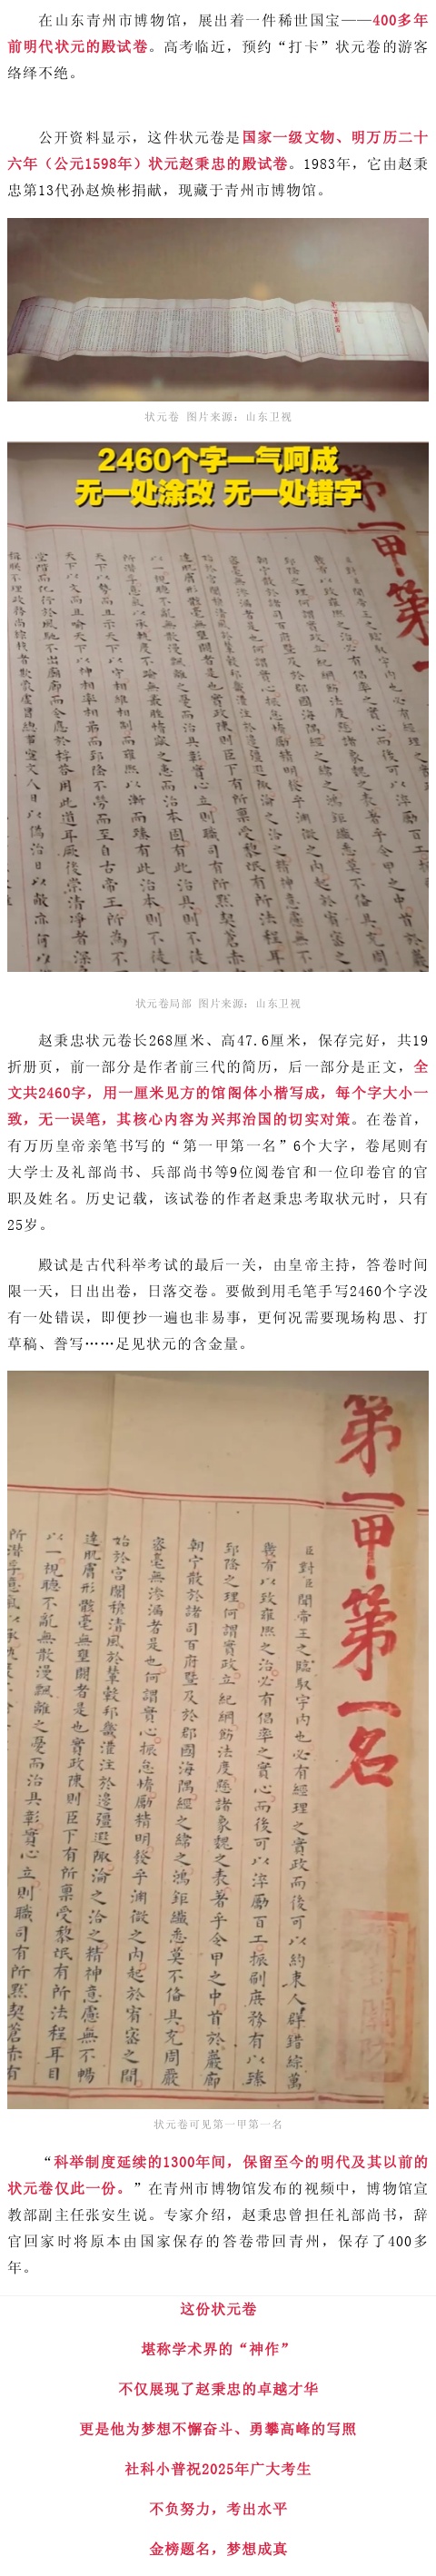 在山东青州市博物馆，展出着一件稀世国宝——400多年
前明代状元的殿试卷。高考临近，预约“打卡”状元卷的游客
络绎不绝。
公开资料显示，这件状元卷是国家一级文物、明万历二十
六年（公元1598年）状元赵秉忠的殿试卷。1983年，它由赵秉
忠第13代孙赵焕彬捐献，现藏于青州市博物馆。
状元卷 图片来源：山东卫视
2460个字一气呵成
无一处涂改 无一处错字
第一甲第一
状元卷局部 图片来源：山东卫视
赵秉忠状元卷长268厘米、高47.6厘米，保存完好，共19
折册页，前一部分是作者前三代的简历，后一部分是正文，全
文共2460字，用一厘米见方的馆阁体小楷写成，每个字大小一
致，无一误笔，其核心内容为兴邦治国的切实对策。在卷首，
有万历皇帝亲笔书写的“第一甲第一名”6个大字，卷尾则有
大学士及礼部尚书、兵部尚书等9位阅卷官和一位印卷官的官
职及姓名。历史记载，该试卷的作者赵秉忠考取状元时，只有
25岁。
殿试是古代科举考试的最后一关，由皇帝主持，答卷时间
限一天，日出出卷，日落交卷。要做到用毛笔手写2460个字没
有一处错误，即便抄一遍也非易事，更何况需要现场构思、打
草稿、誊写……足见状元的含金量。
第一甲第一名
臣對臣聞帝王之臨馭宇内也必有經理之實政而後可以約束人群錯綜萬
幾有以致雍熙之治必有倡率之實心而後可以淬勵百工振刷庶務有以臻
郅隆之理何謂實政立紀綱飭法度懸諸象魏之表著乎令甲之中首於巖廊
朝宁散於諸司百府暨及於郡國海隅經之緯之鴻鉅纖悉莫不備具充周嚴
密毫無滲漏者是也何謂實心振怠惰勵精明發乎淵微之内起於宥密之間
始於宮闈穆清風於輦轂邦畿灌注於邊疆遐陬淪之洽之精神意慮無不暢
達肌膚形骸毫無壅閼者是也實政陳則臣下有所稟受黎氓有所法程耳目
以一視聽不亂無散漫飄離之憂而治具彰實心立則職司有所默契蒼赤有
状元卷可见第一甲第一名
“科举制度延续的1300年间，保留至今的明代及其以前的
状元卷仅此一份。”在青州市博物馆发布的视频中，博物馆宣
教部副主任张安生说。专家介绍，赵秉忠曾担任礼部尚书，辞
官回家时将原本由国家保存的答卷带回青州，保存了400多
年。
这份状元卷
堪称学术界的“神作”
不仅展现了赵秉忠的卓越才华
更是他为梦想不懈奋斗、勇攀高峰的写照
社科小普祝2025年广大考生
不负努力，考出水平
金榜题名，梦想成真